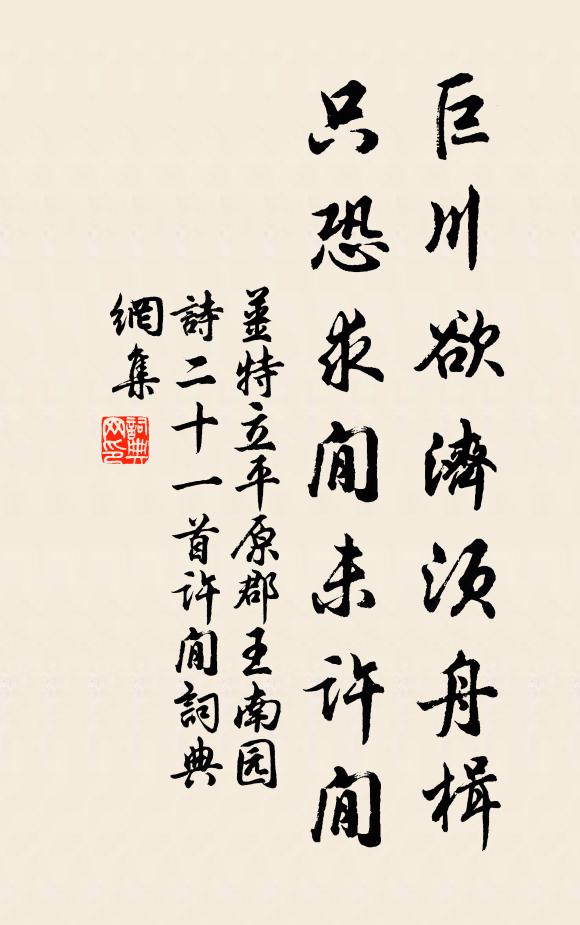 巨川欲濟須舟楫
只恐求閒未許閒
薑特立平原郡王南园
詩二十一首許閒詞典
網集
詞典网印